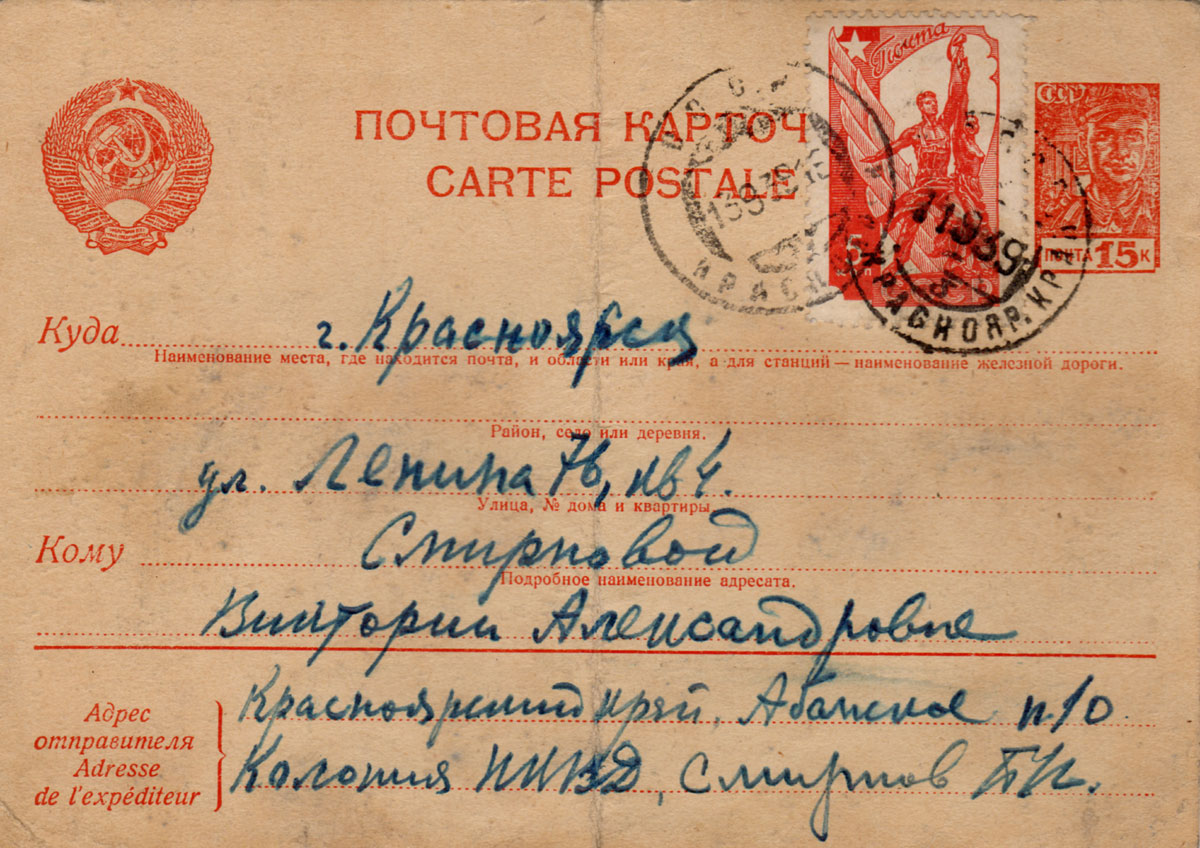 ПОЧТОВАЯ КАРТОЧ
CARTE POSTALE
Почта
СССР
ПОЧТА 15 К
11939
КРАСНОЯР. КР
Куда г. Красноярск
Наименование места, где находится почта, и области или края, а для станций — наименование железной дороги.
Район, село или деревня.
ул. Ленина 76, кв 4.
Улица, № дома и квартиры.
Кому Смирновой
Подробное наименование адресата.
Виктории Александровне
Адрес отправителя
Adresse de l'expéditeur
Красноярский край, Абанское п/о
Колония НКВД, Смирнов